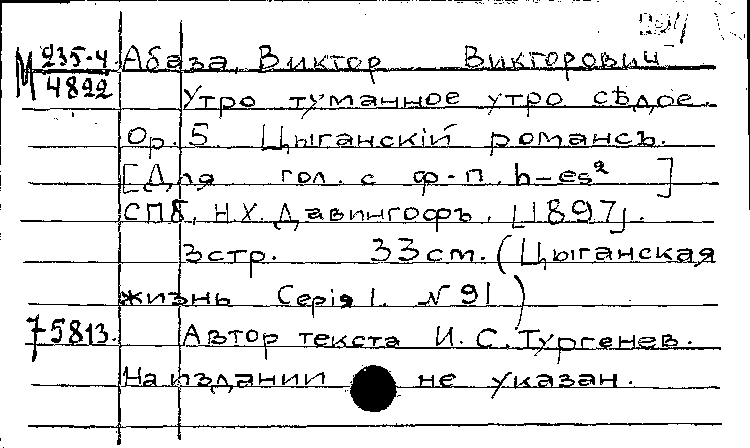 М 235-4 Абаза, Виктор Викторович
4822 Утро туманное утро сѣдое.
Ор. 5 Цыганскій романсъ.
[Для гол. с ф-п. h-es²]
СПб, Н.Х. Давингофъ. [1897].
3стр. 33см. (Цыганская
жизнь Серія I. № 91)
75813. Автор текста И. С. Тургенев.
На издании не указан.